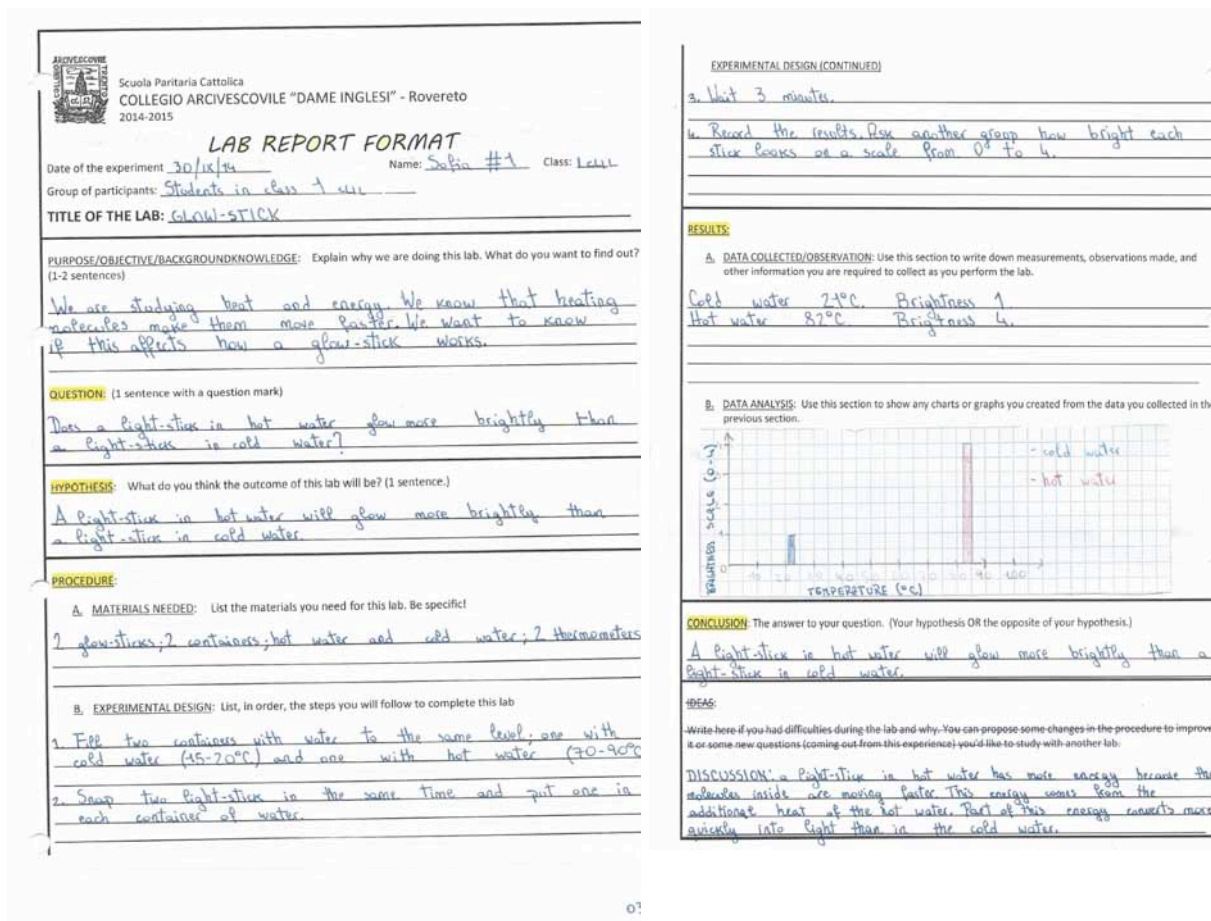 ARCIVESCOVILE
Scuola Paritaria Cattolica
COLLEGIO ARCIVESCOVILE "DAME INGLESI" - Rovereto
2014-2015
LAB REPORT FORMAT
Date of the experiment 30/IX/14 Name: Sofia #1 Class:
Group of participants: Students in class 1
TITLE OF THE LAB: GLOW-STICK
PURPOSE/OBJECTIVE/BACKGROUNDKNOWLEDGE: Explain why we are doing this lab. What do you want to find out?
(1-2 sentences)
We are studying heat and energy. We know that heating
molecules make them move faster. We want to know
if this affects how a glow-stick works.
QUESTION: (1 sentence with a question mark)
Does a light-stick in hot water glow more brightly than
a light-stick in cold water?
HYPOTHESIS: What do you think the outcome of this lab will be? (1 sentence.)
A light-stick in hot water will glow more brightly than
a light-stick in cold water.
PROCEDURE:
A. MATERIALS NEEDED: List the materials you need for this lab. Be specific!
2 glow-sticks; 2 containers; hot water and cold water; 2 thermometers
B. EXPERIMENTAL DESIGN: List, in order, the steps you will follow to complete this lab
1. Fill two containers with water to the same level; one with
cold water (15-20°C) and one with hot water (70-90°C
2. Snap two light-stick in the same time and put one in
each container of water.
03
EXPERIMENTAL DESIGN (CONTINUED)
3. Wait 3 minutes.
4. Record the results. Ask another group how bright each
stick looks on a scale from 0 to 4.
RESULTS:
A. DATA COLLECTED/OBSERVATION: Use this section to write down measurements, observations made, and
other information you are required to collect as you perform the lab.
Cold water 21°C. Brightness 1.
Hot water 82°C. Brightness 4.
B. DATA ANALYSIS: Use this section to show any charts or graphs you created from the data you collected in the
previous section.
BRIGHTNESS SCALE (0-4)
- cold water
- hot water
0 10 20 30 40 50 60 70 80 90 100
TEMPERATURE (°C)
CONCLUSION: The answer to your question. (Your hypothesis OR the opposite of your hypothesis.)
A light-stick in hot water will glow more brightly than a
light-stick in cold water.
IDEAS:
Write here if you had difficulties during the lab and why. You can propose some changes in the procedure to improve
it or some new questions (coming out from this experience) you'd like to study with another lab.
DISCUSSION: a light-stick in hot water has more energy because the
molecules inside are moving faster. This energy comes from the
additional heat of the hot water. Part of this energy converts more
quickly into light than in the cold water.